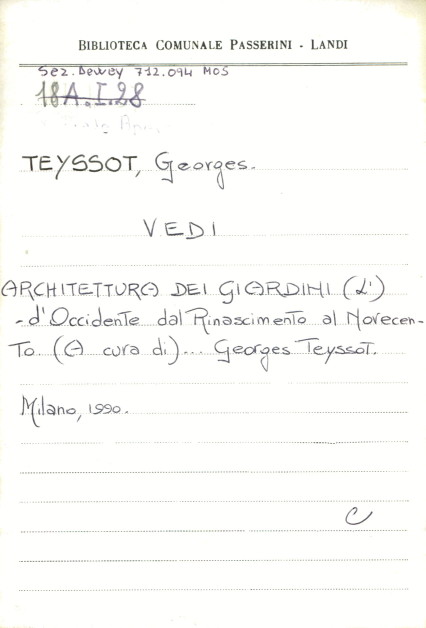 BIBLIOTECA COMUNALE PASSERINI - LANDI
Sez. Dewey 712.094 MOS
18A.I.28
TEYSSOT, Georges.
VEDI
ARCHITETTURA DEI GIARDINI (L')
- d'Occidente dal Rinascimento al Novecen-
to. (A cura di)... Georges Teyssot.
Milano, 1990.
C